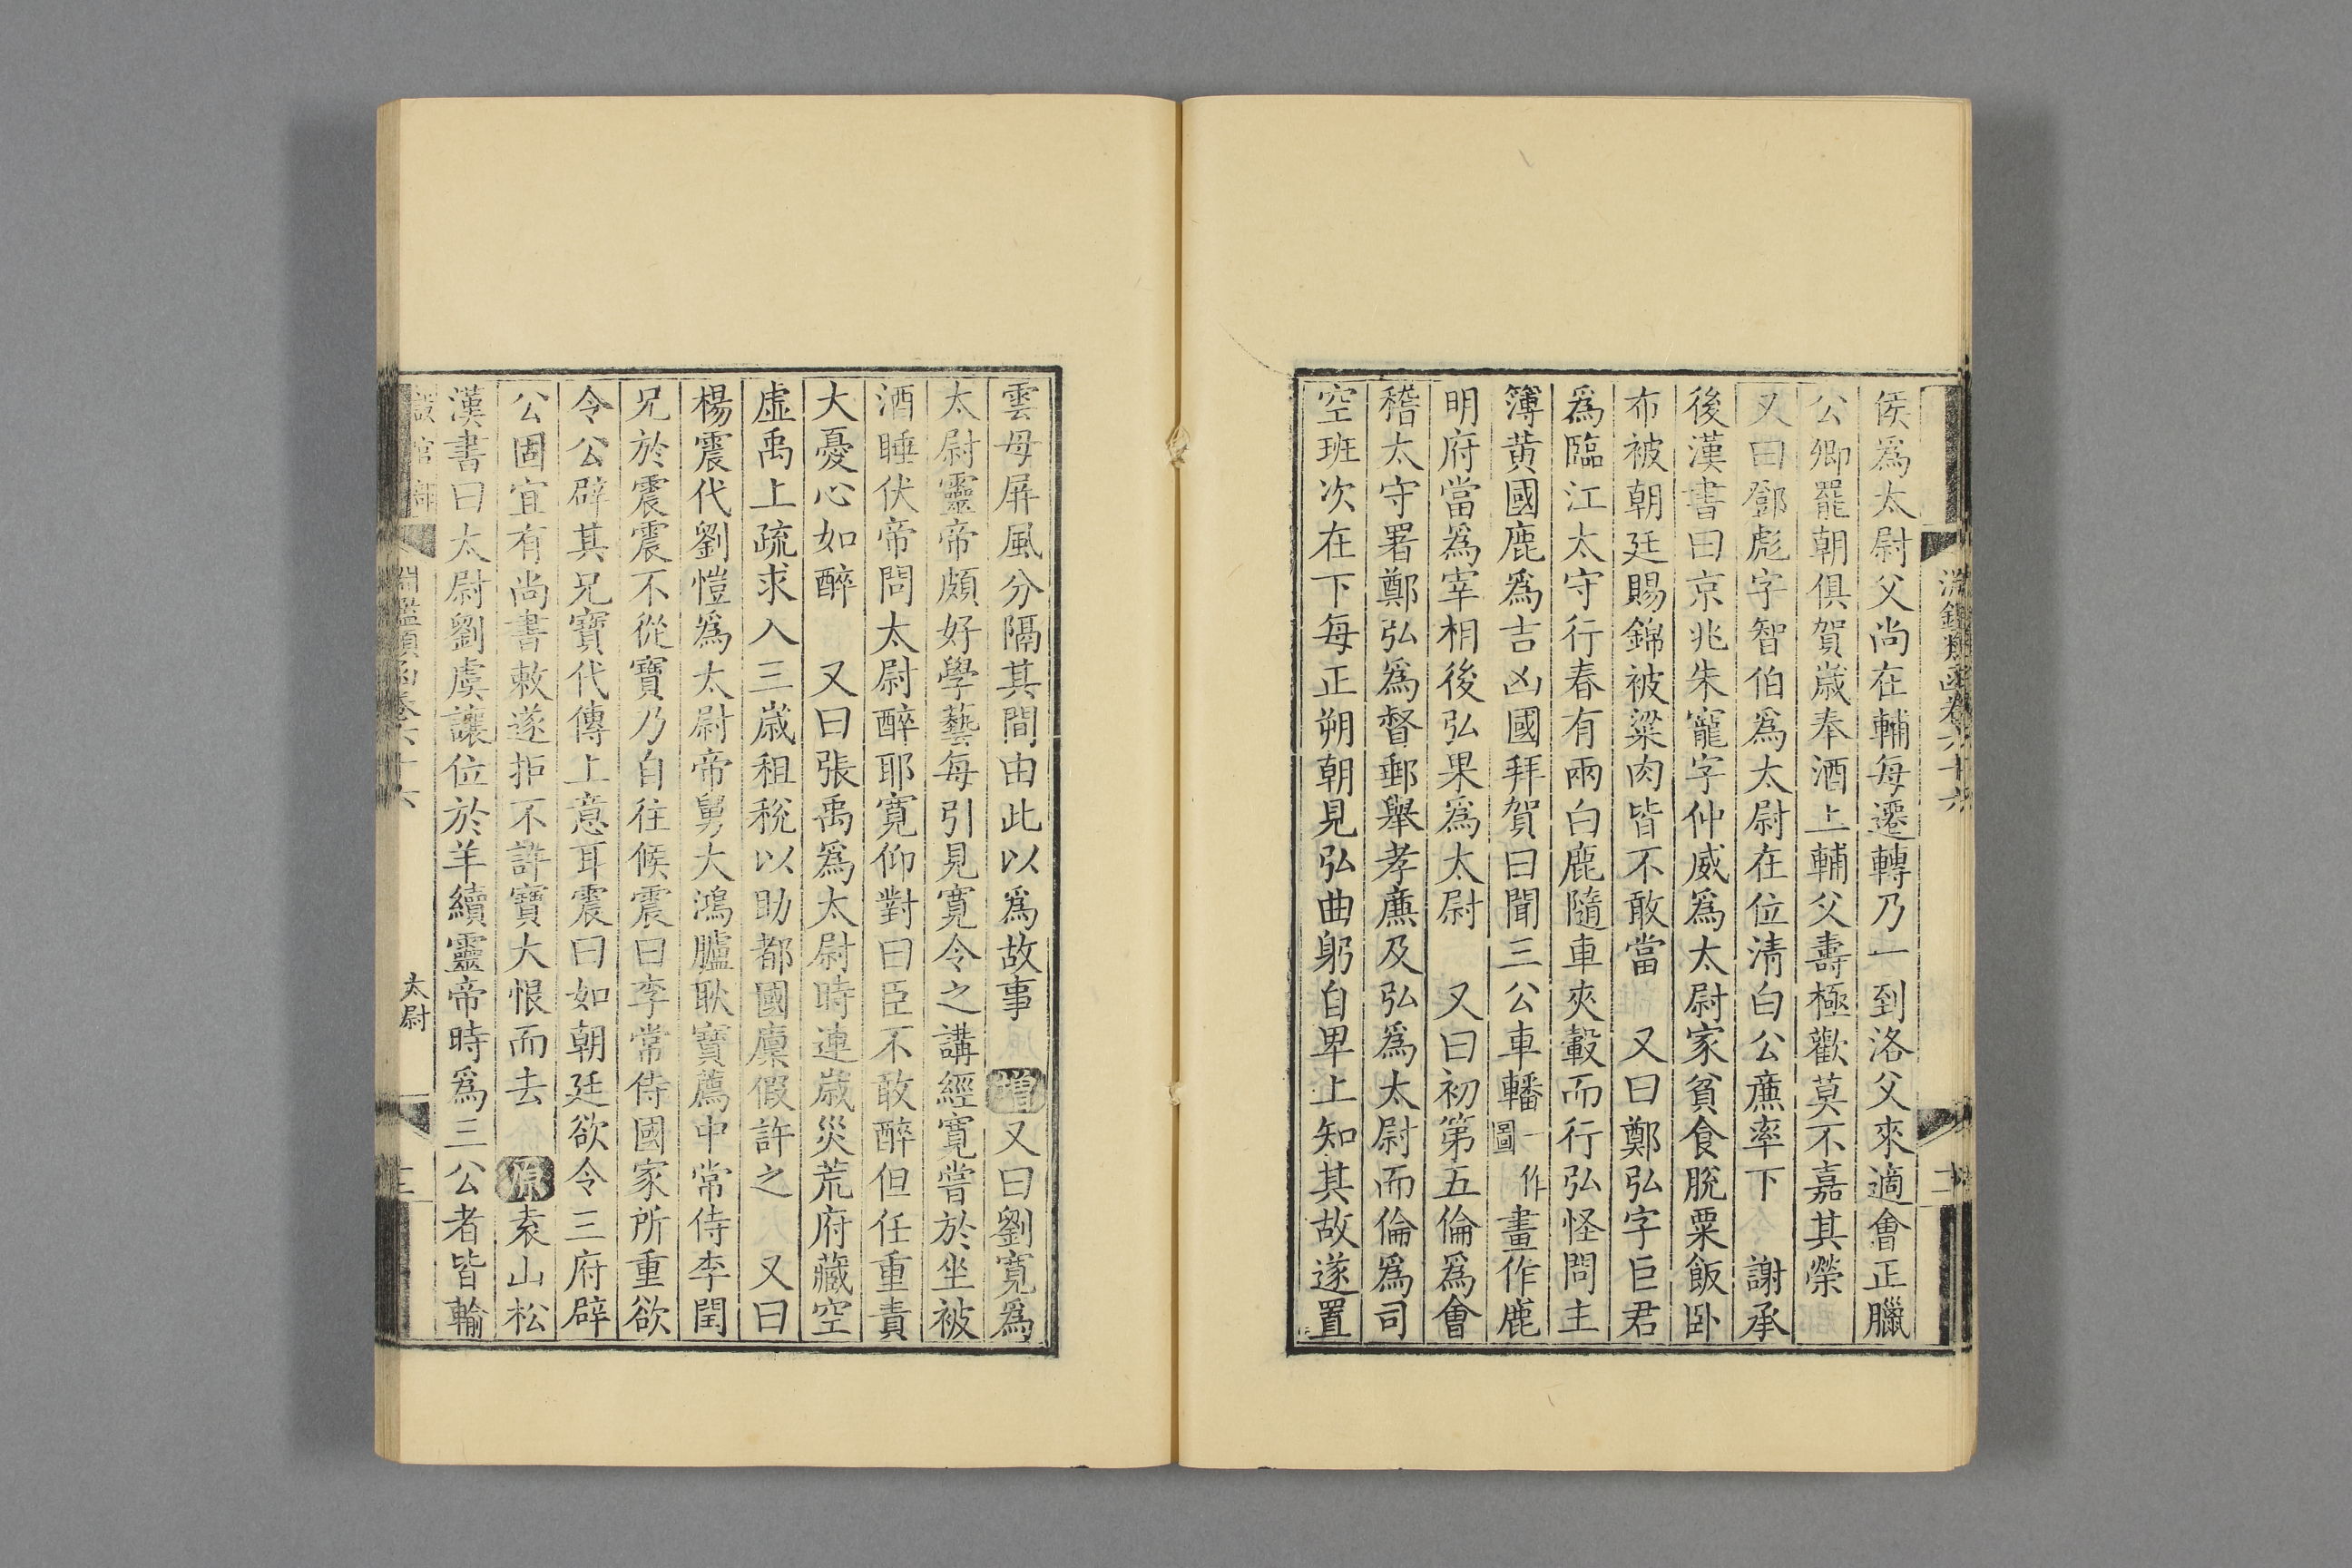 侯爲太尉父尚在輔每遷轉乃一到洛父來適會正臘
公卿罷朝俱賀歲奉酒上輔父壽極歡莫不嘉其榮
又曰鄧彪字智伯爲太尉在位清白公廉率下　謝承
後漢書曰京兆朱寵字仲威爲太尉家貧食脫粟飯卧
布被朝廷賜錦被粱肉皆不敢當　又曰鄭弘字巨君
爲臨江太守行春有兩白鹿隨車夾轂而行弘怪問主
簿黃國鹿爲吉凶國拜賀曰聞三公車轓一作圖畫作鹿
明府當爲宰相後弘果爲太尉　又曰初第五倫爲會
稽太守署鄭弘爲督郵舉孝廉及弘爲太尉而倫爲司
空班次在下每正朔朝見弘曲躬自卑上知其故遂置
雲母屏風分隔其間由此以爲故事　增又曰劉寬爲
太尉靈帝頗好學藝每引見寬令之講經寬嘗於坐被
酒睡伏帝問太尉醉耶寬仰對曰臣不敢醉但任重責
大憂心如醉　又曰張禹爲太尉時連歲災荒府藏空
虛禹上疏求入三歲租稅以助都國廩假許之　又曰
楊震代劉愷爲太尉帝舅大鴻臚耿寶薦中常侍李閏
兄於震震不從寶乃自往候震曰李常侍國家所重欲
令公辟其兄寶代傳上意耳震曰如朝廷欲令三府辟
公固宜有尚書敕遂拒不許寶大恨而去　原袁山松
漢書曰太尉劉虞讓位於羊續靈帝時爲三公者皆輸
淵鑑類函卷六十六
太尉